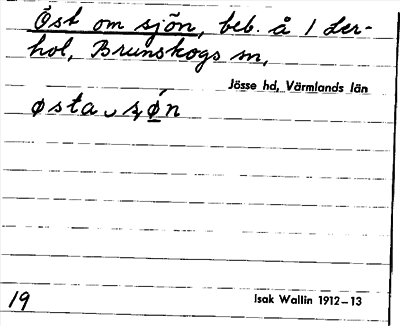 Öst om sjön, beb. å 1 Ler-
hol, Brunskogs sn,
Jösse hd, Värmlands län
østa ᴗ sjǿn
19 Isak Wallin 1912–13